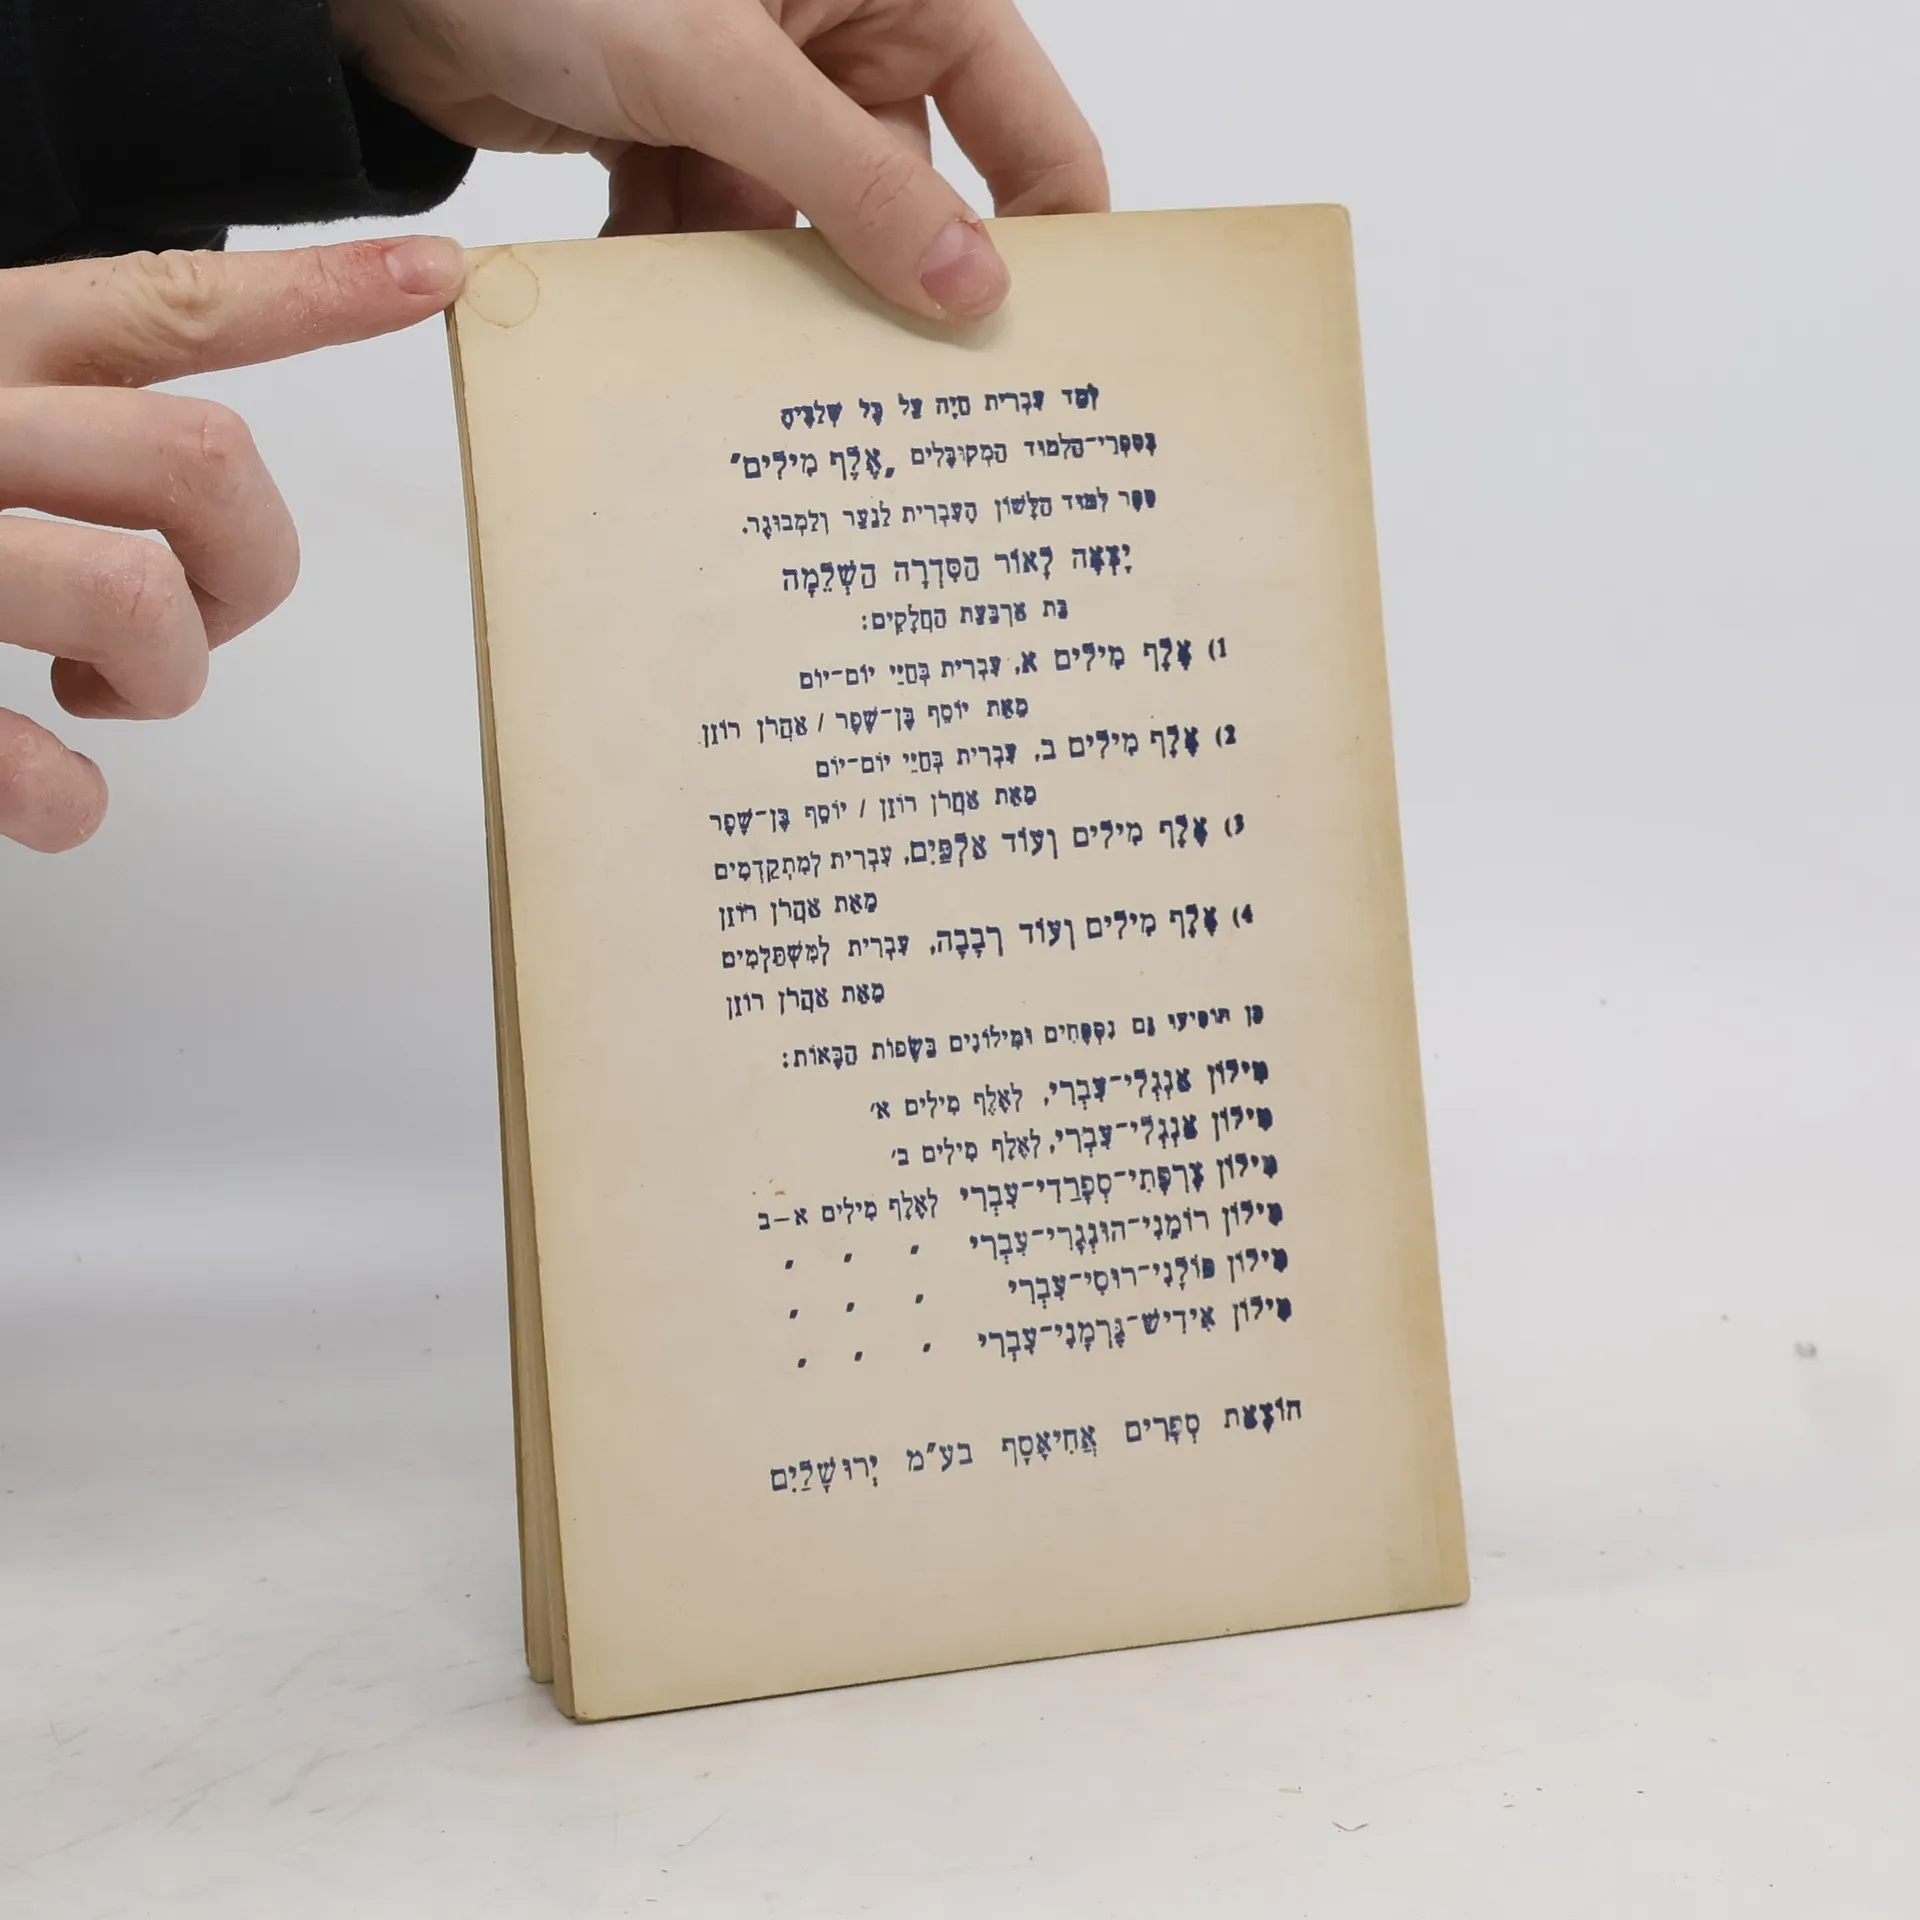 לְמַד עִבְרִית חַיָּה עַל כָּל שְׁלַבֶּיהָ
בְּסִפְרֵי־הַלִּמּוּד הַמְקוּבָּלִים „אֶלֶף מִילִים”
סֵפֶר לִמּוּד הַלָּשׁוֹן הָעִבְרִית לַנֹּעַר וְלַמְבוּגָר.
יָצְאָה לָאוֹר הַסִּדְרָה הַשְּׁלֵמָה
בַּת אַרְבַּעַת הַחֲלָקִים:
1) אֶלֶף מִילִים א, עִבְרִית בְּחַיֵּי יוֹם־יוֹם
מֵאֵת יוֹסֵף בֶּן־שֶׁפֶר / אַהֲרֹן רוֹזֵן
2) אֶלֶף מִילִים ב, עִבְרִית בְּחַיֵּי יוֹם־יוֹם
מֵאֵת אַהֲרֹן רוֹזֵן / יוֹסֵף בֶּן־שֶׁפֶר
3) אֶלֶף מִילִים וְעוֹד אַלְפַּיִם, עִבְרִית לְמִתְקַדְּמִים
מֵאֵת אַהֲרֹן רוֹזֵן
4) אֶלֶף מִילִים וְעוֹד רְבָבָה, עִבְרִית לְמִשְׁתַּלְּמִים
מֵאֵת אַהֲרֹן רוֹזֵן
כֵּן הוֹפִיעוּ גַּם נִסְפָּחִים וּמִילוֹנִים בַּשָּׂפוֹת הַבָּאוֹת:
מִילוֹן אַנְגְּלִי־עִבְרִי, לְאֶלֶף מִילִים א׳
מִילוֹן אַנְגְּלִי־עִבְרִי, לְאֶלֶף מִילִים ב׳
מִילוֹן צָרְפָתִי־סְפָרַדִּי־עִבְרִי לְאֶלֶף מִילִים א–ב
מִילוֹן רוֹמָנִי־הוּנְגָּרִי־עִבְרִי " " "
מִילוֹן פּוֹלָנִי־רוּסִי־עִבְרִי " " "
מִילוֹן אִידִישׁ־גֶּרְמָנִי־עִבְרִי " " "
הוֹצָאַת סְפָרִים אֲחִיאָסָף בע״מ יְרוּשָׁלַיִם